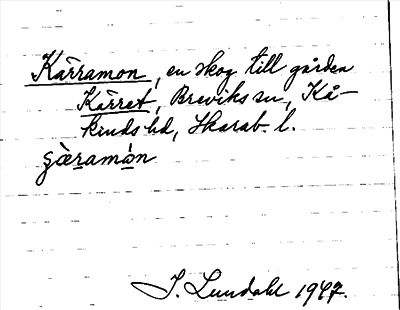 Kärramon, en skog till gården
Kärret, Breviks sn, Kå-
kinds hd, Skarab. l.
çæ̀ramòn
I. Lundahl 1947.